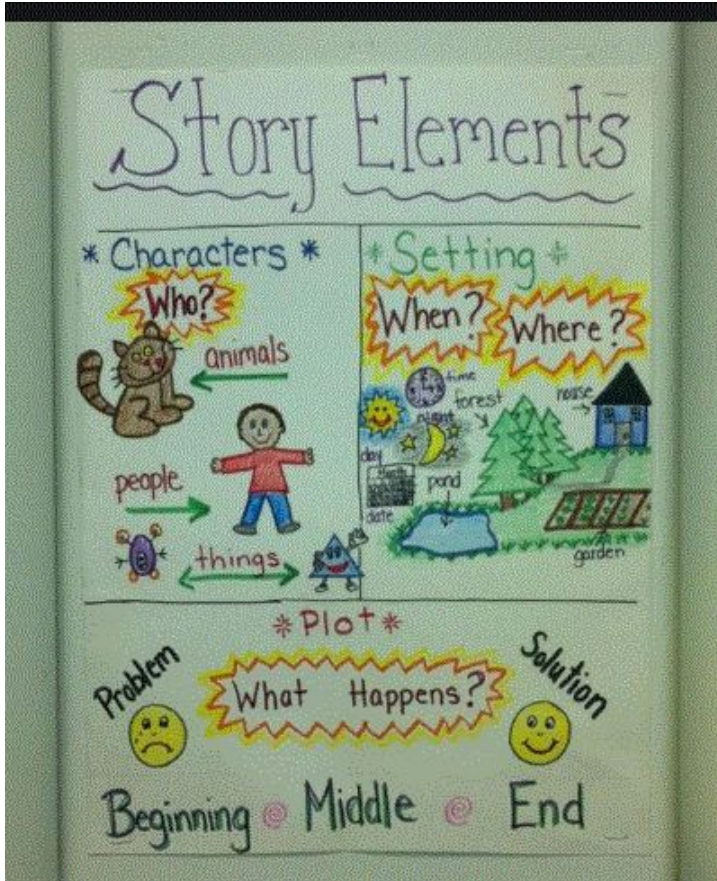 Story Elements
* Characters *
Who?
animals
people
things
* Setting *
When? Where?
time
forest
house
night
day
pond
date
garden
* Plot *
Problem
What Happens?
Solution
Beginning @ Middle @ End